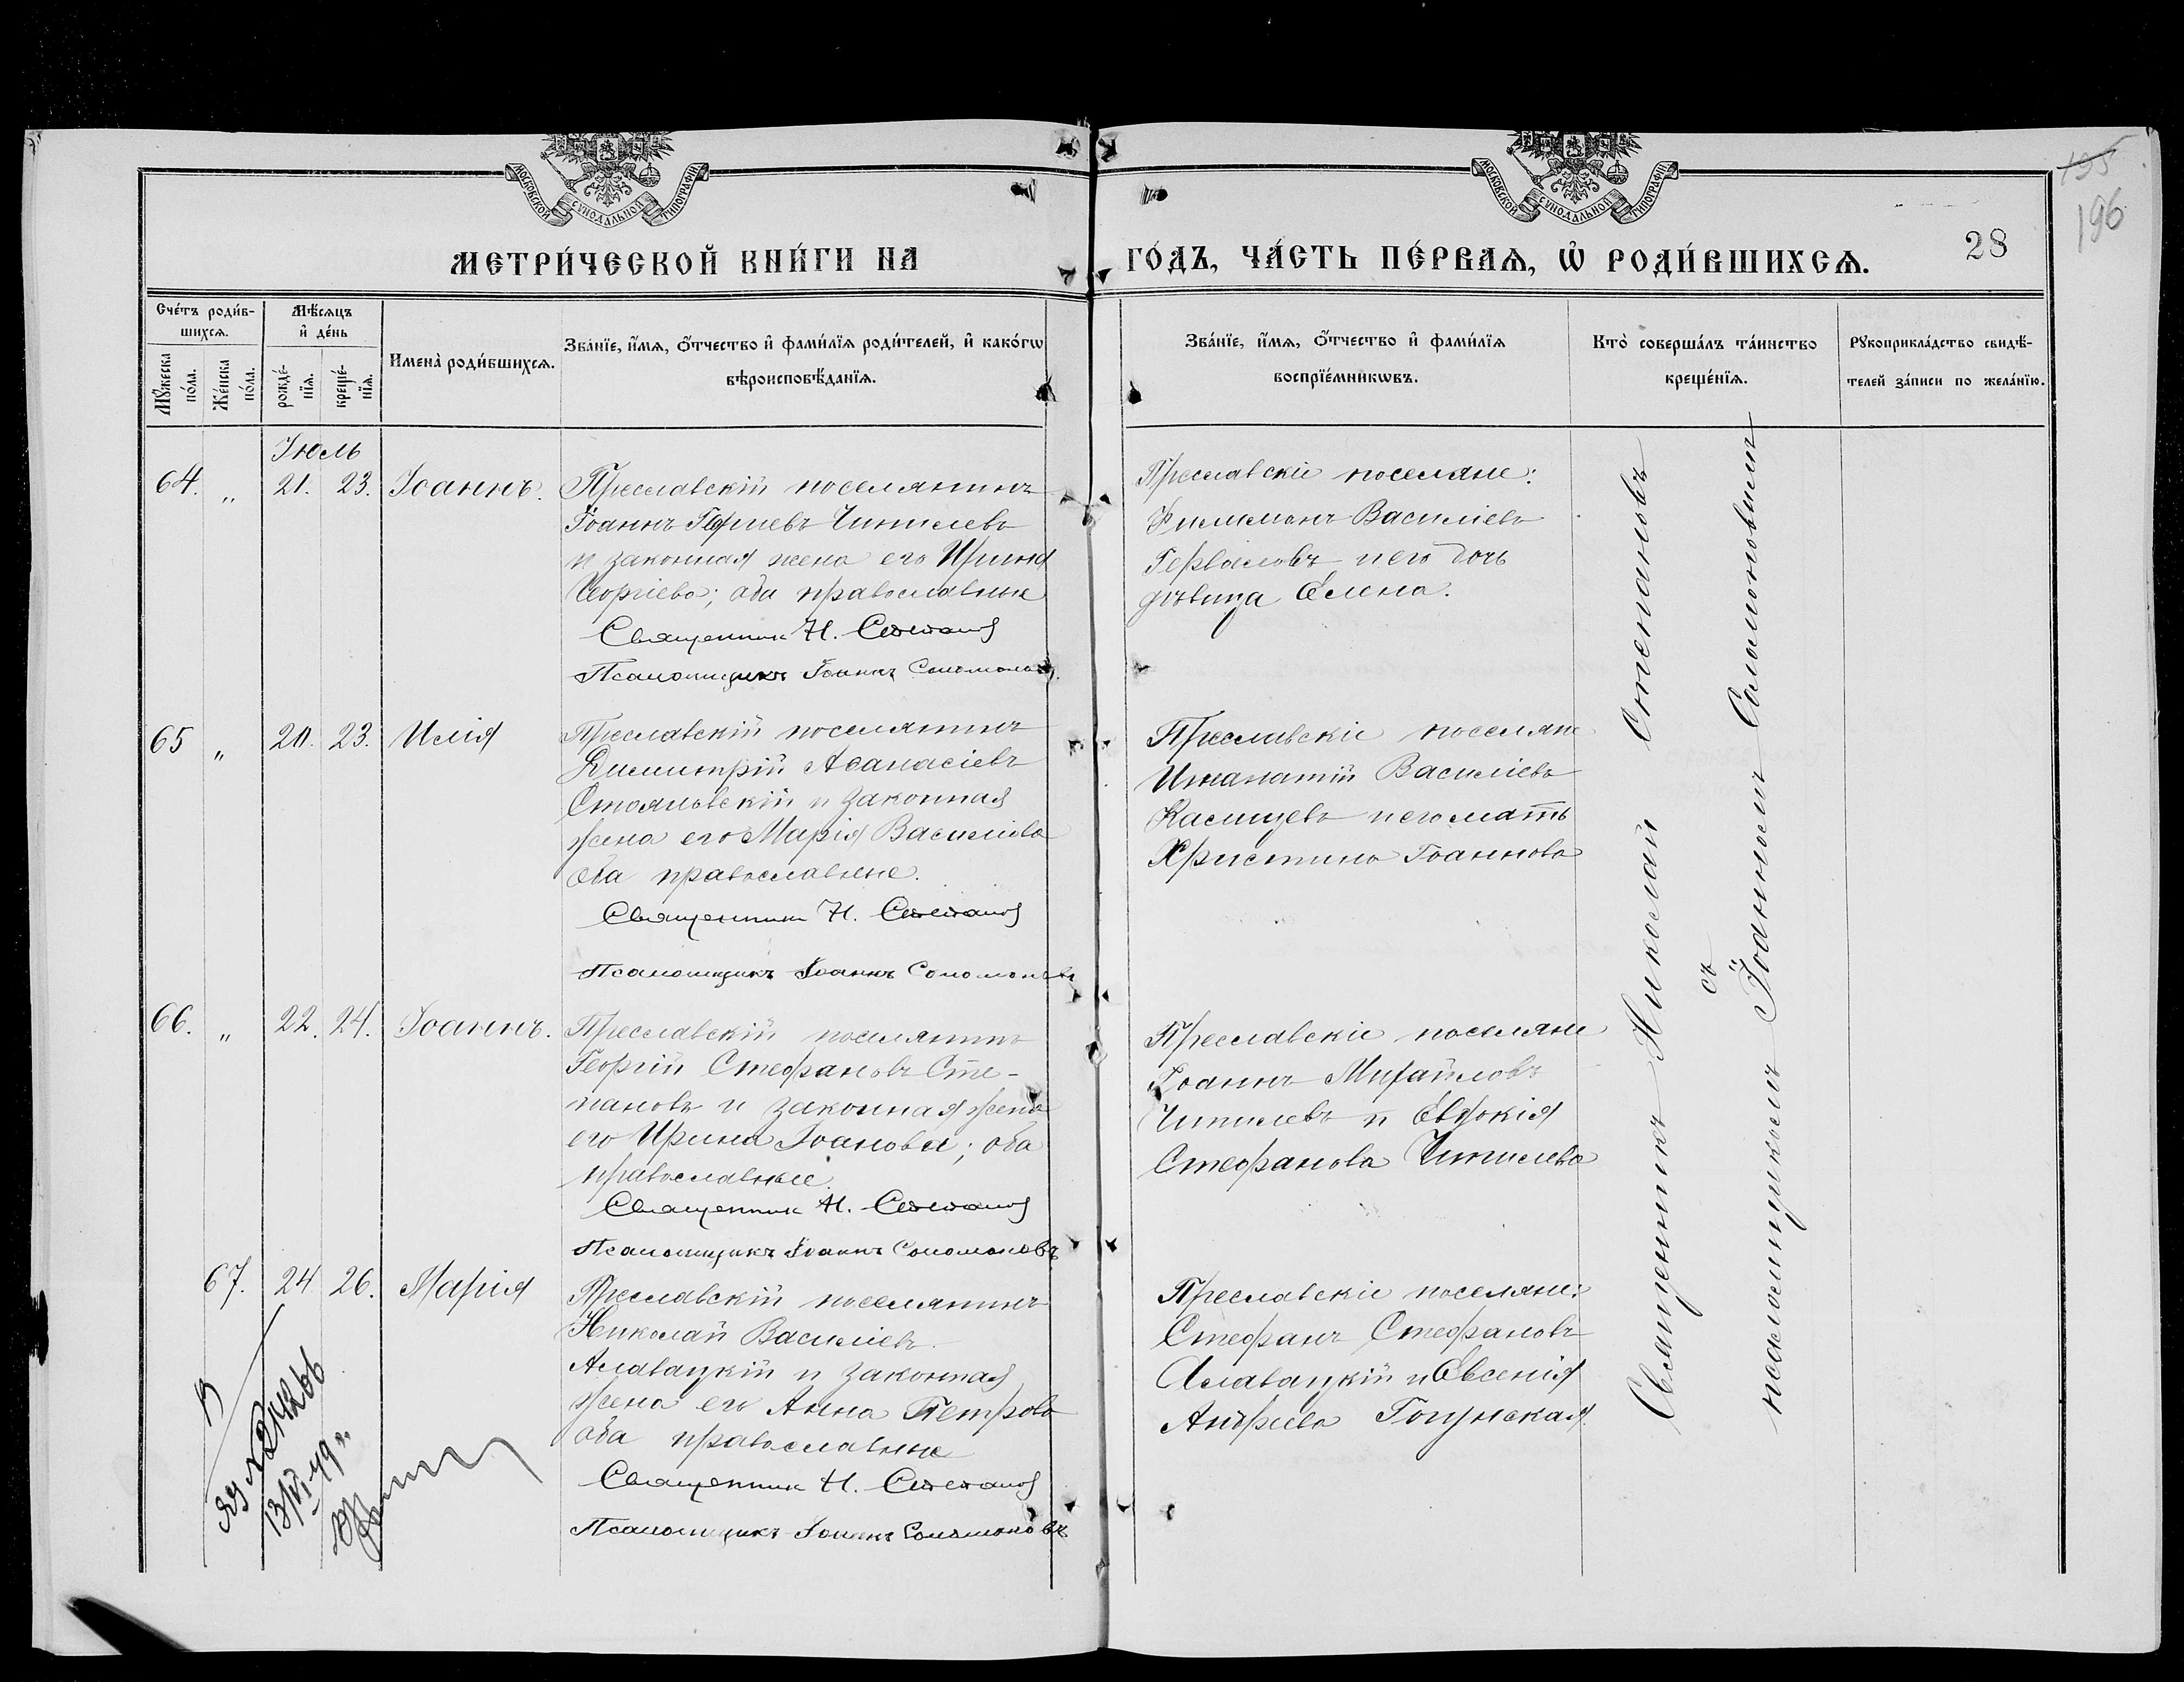 МОСКОВСКОЙ СѴНОДАЛЬНОЙ ТИПОГРАФІИ
МОСКОВСКОЙ СѴНОДАЛЬНОЙ ТИПОГРАФІИ
195
196
МЕТРИ́ЧЕСКОЙ КНИ́ГИ НА
ГО́ДЪ, ЧА́СТЬ ПЕ́РВАѦ, Ѡ҆ РОДИ́ВШИХСѦ.
28
Сче́тъ роди́в-
шихсѧ.
Мꙋ́жеска
по́ла.
Же́нска
по́ла.
Мѣ́сѧцъ
и҆ де́нь
рожде́-
нїѧ.
креще́-
нїѧ.
Имена̀ роди́вшихсѧ.
Зва́нїе, и҆́мѧ, ѻ҆́тчество и҆ фами́лїѧ роди́телей, и҆ како́гѡ
вѣроисповѣ́данїѧ.
Зва́нїе, и҆́мѧ, ѻ҆́тчество и҆ фами́лїѧ
воспрїе́мникѡвъ.
Кто̀ соверша́лъ та́инство
креще́нїѧ.
Рꙋкоприкла́дство свидѣ́-
телей за́писи по жела́нїю.
Іюль
64. „ 21. 23. Іоаннъ.
Преславскій поселянинъ
Іоаннъ Чипилевъ
и законная жена его Ирина
Георгіева; оба православные
Священник Н. Степанов
Псаломщикъ Іоаннъ Соломоновъ
Преславскіе поселяне:
Филимонъ Василіевъ
Гервасовъ и его дочь
дѣвица Елена.
65 „ 20. 23. Илія
Преславскій поселянинъ
Димитрій Аѳанасіевъ
Стояновскій и законная
жена его Марія Василіева
оба православные.
Священник Н. Степанов
Псаломщикъ Іоаннъ Соломоновъ
Преславскіе поселяне
Игнатій Василіевъ
Касицевъ и его мать
Христина Іоаннова
66. „ 22. 24. Іоаннъ.
Преславскій поселянинъ
Георгій Стефановъ Сте-
пановъ и законная жена
его Ирина Іоанова; оба
православные
Священник Н. Степанов
Псаломщикъ Іоаннъ Соломоновъ
Преславскіе поселяне
Іоаннъ Михайловъ
Чипилевъ и Евдокія
Стефанова Чипилева
67. 24 26. Марія
Преславскій поселянинъ
Николай Василіевъ
Алавацкій и законная
жена его Анна Петрова
оба православные
Священник Н. Степанов
Псаломщикъ Іоаннъ Соломоновъ
Преславскіе поселяне:
Стефанъ Стефановъ
Алавацкій и Евгенія
Андреева
Священникъ Николай Степановъ
съ
псаломщикомъ Іоанномъ Саломоновымъ
13/VI 49 г.